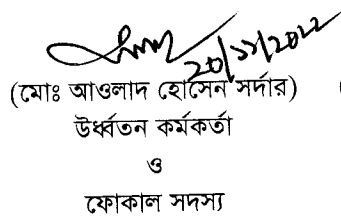 20/11/2022
(মোঃ আওলাদ হোসেন সর্দার)
উর্ধ্বতন কর্মকর্তা
ও
ফোকাল সদস্য